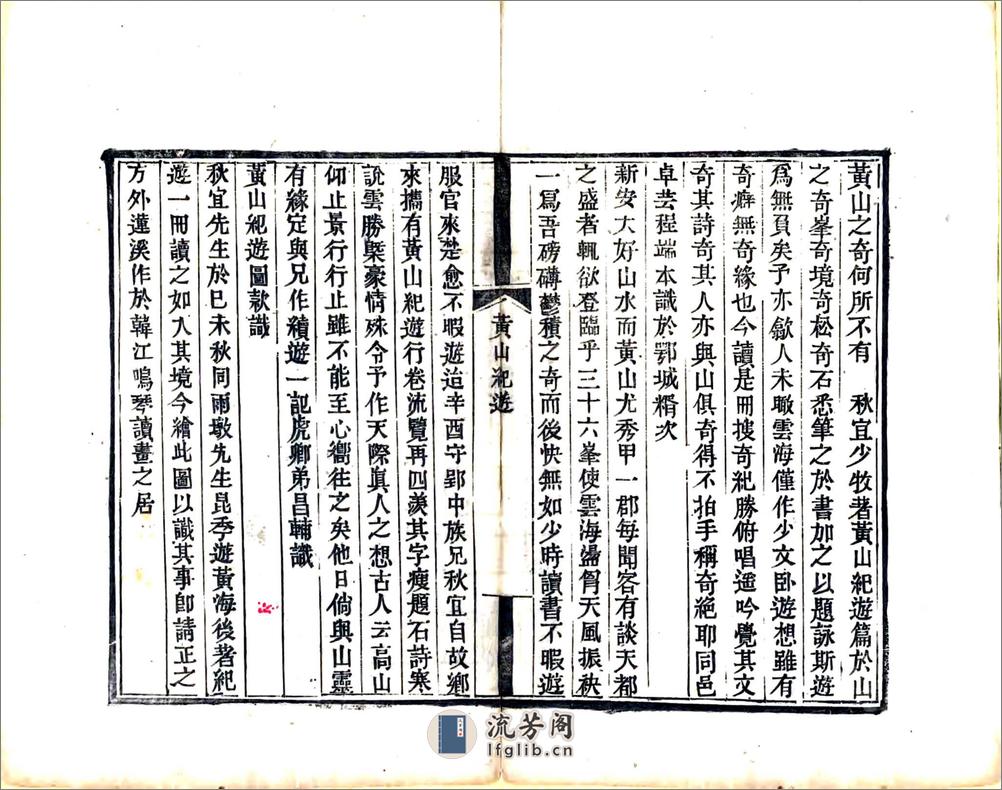 黃山之奇何所不有　秋宜少牧著黃山紀遊篇於山
之奇峯奇境奇松奇石悉筆之於書加之以題詠斯遊
爲無負矣予亦歙人未瞰雲海僅作少文卧遊想雖有
奇癖無奇緣也今讀是冊搜奇紀勝俯唱遥吟覺其文
奇其詩奇其人亦與山俱奇得不拍手稱奇絶耶同邑
卓芸程端本識於鄂城糈次
新安大好山水而黃山尤秀甲一郡每聞客有談天都
之盛者輒欲登臨乎三十六峯使雲海盪胷天風振袂
一爲吾磅礴鬱積之奇而後快無如少時讀書不暇遊
黃山紀遊
服官來楚愈不暇遊迨辛酉守郢中族兄秋宜自故鄉
來攜有黃山紀遊行卷流覽再四羨其字瘦題石詩寒
說雲勝槩豪情殊令予作天際眞人之想古人云高山
仰止景行行止雖不能至心嚮往之矣他日倘與山靈
有緣定與兄作續遊一記虎卿弟昌輔識
黃山紀遊圖欵識
秋宜先生於巳未秋同雨墩先生昆季遊黃海後著紀
遊一冊讀之如入其境今繪此圖以識其事卽請正之
方外蓮溪作於韓江鳴琴讀畫之居
流芳阁
lfglib.cn